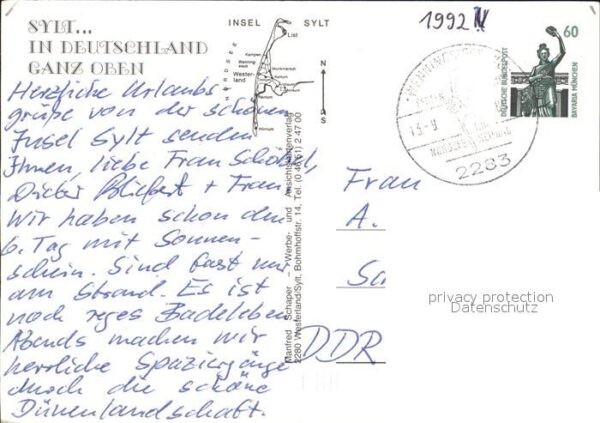 SYLT...
IN DEUTSCHLAND
GANZ OBEN
Herzliche Urlaubs-
grüße von der schönen
Insel Sylt senden
Ihnen, liebe Frau
Dieter + Frau
Wir haben schon den
6. Tag mit Sonnen-
schein. Sind fast nur
am Strand. Es ist
noch reges Badeleben
Abends machen wir
herrliche Spaziergänge
durch die schöne
Dünenlandschaft.
INSEL SYLT
NORDSEE
List
Kampen
Wester-
land
Hörnum
N
S
Manfred Schaper - Werbe- und Ansichtskartenverlag
2280 Westerland/Sylt, Bohmhoffstr. 14, Tel. (0 46 51) 2 47 00
1992
60
DEUTSCHE BUNDESPOST
BAVARIA MÜNCHEN
2283
Frau
A.
DDR
privacy protection
Datenschutz